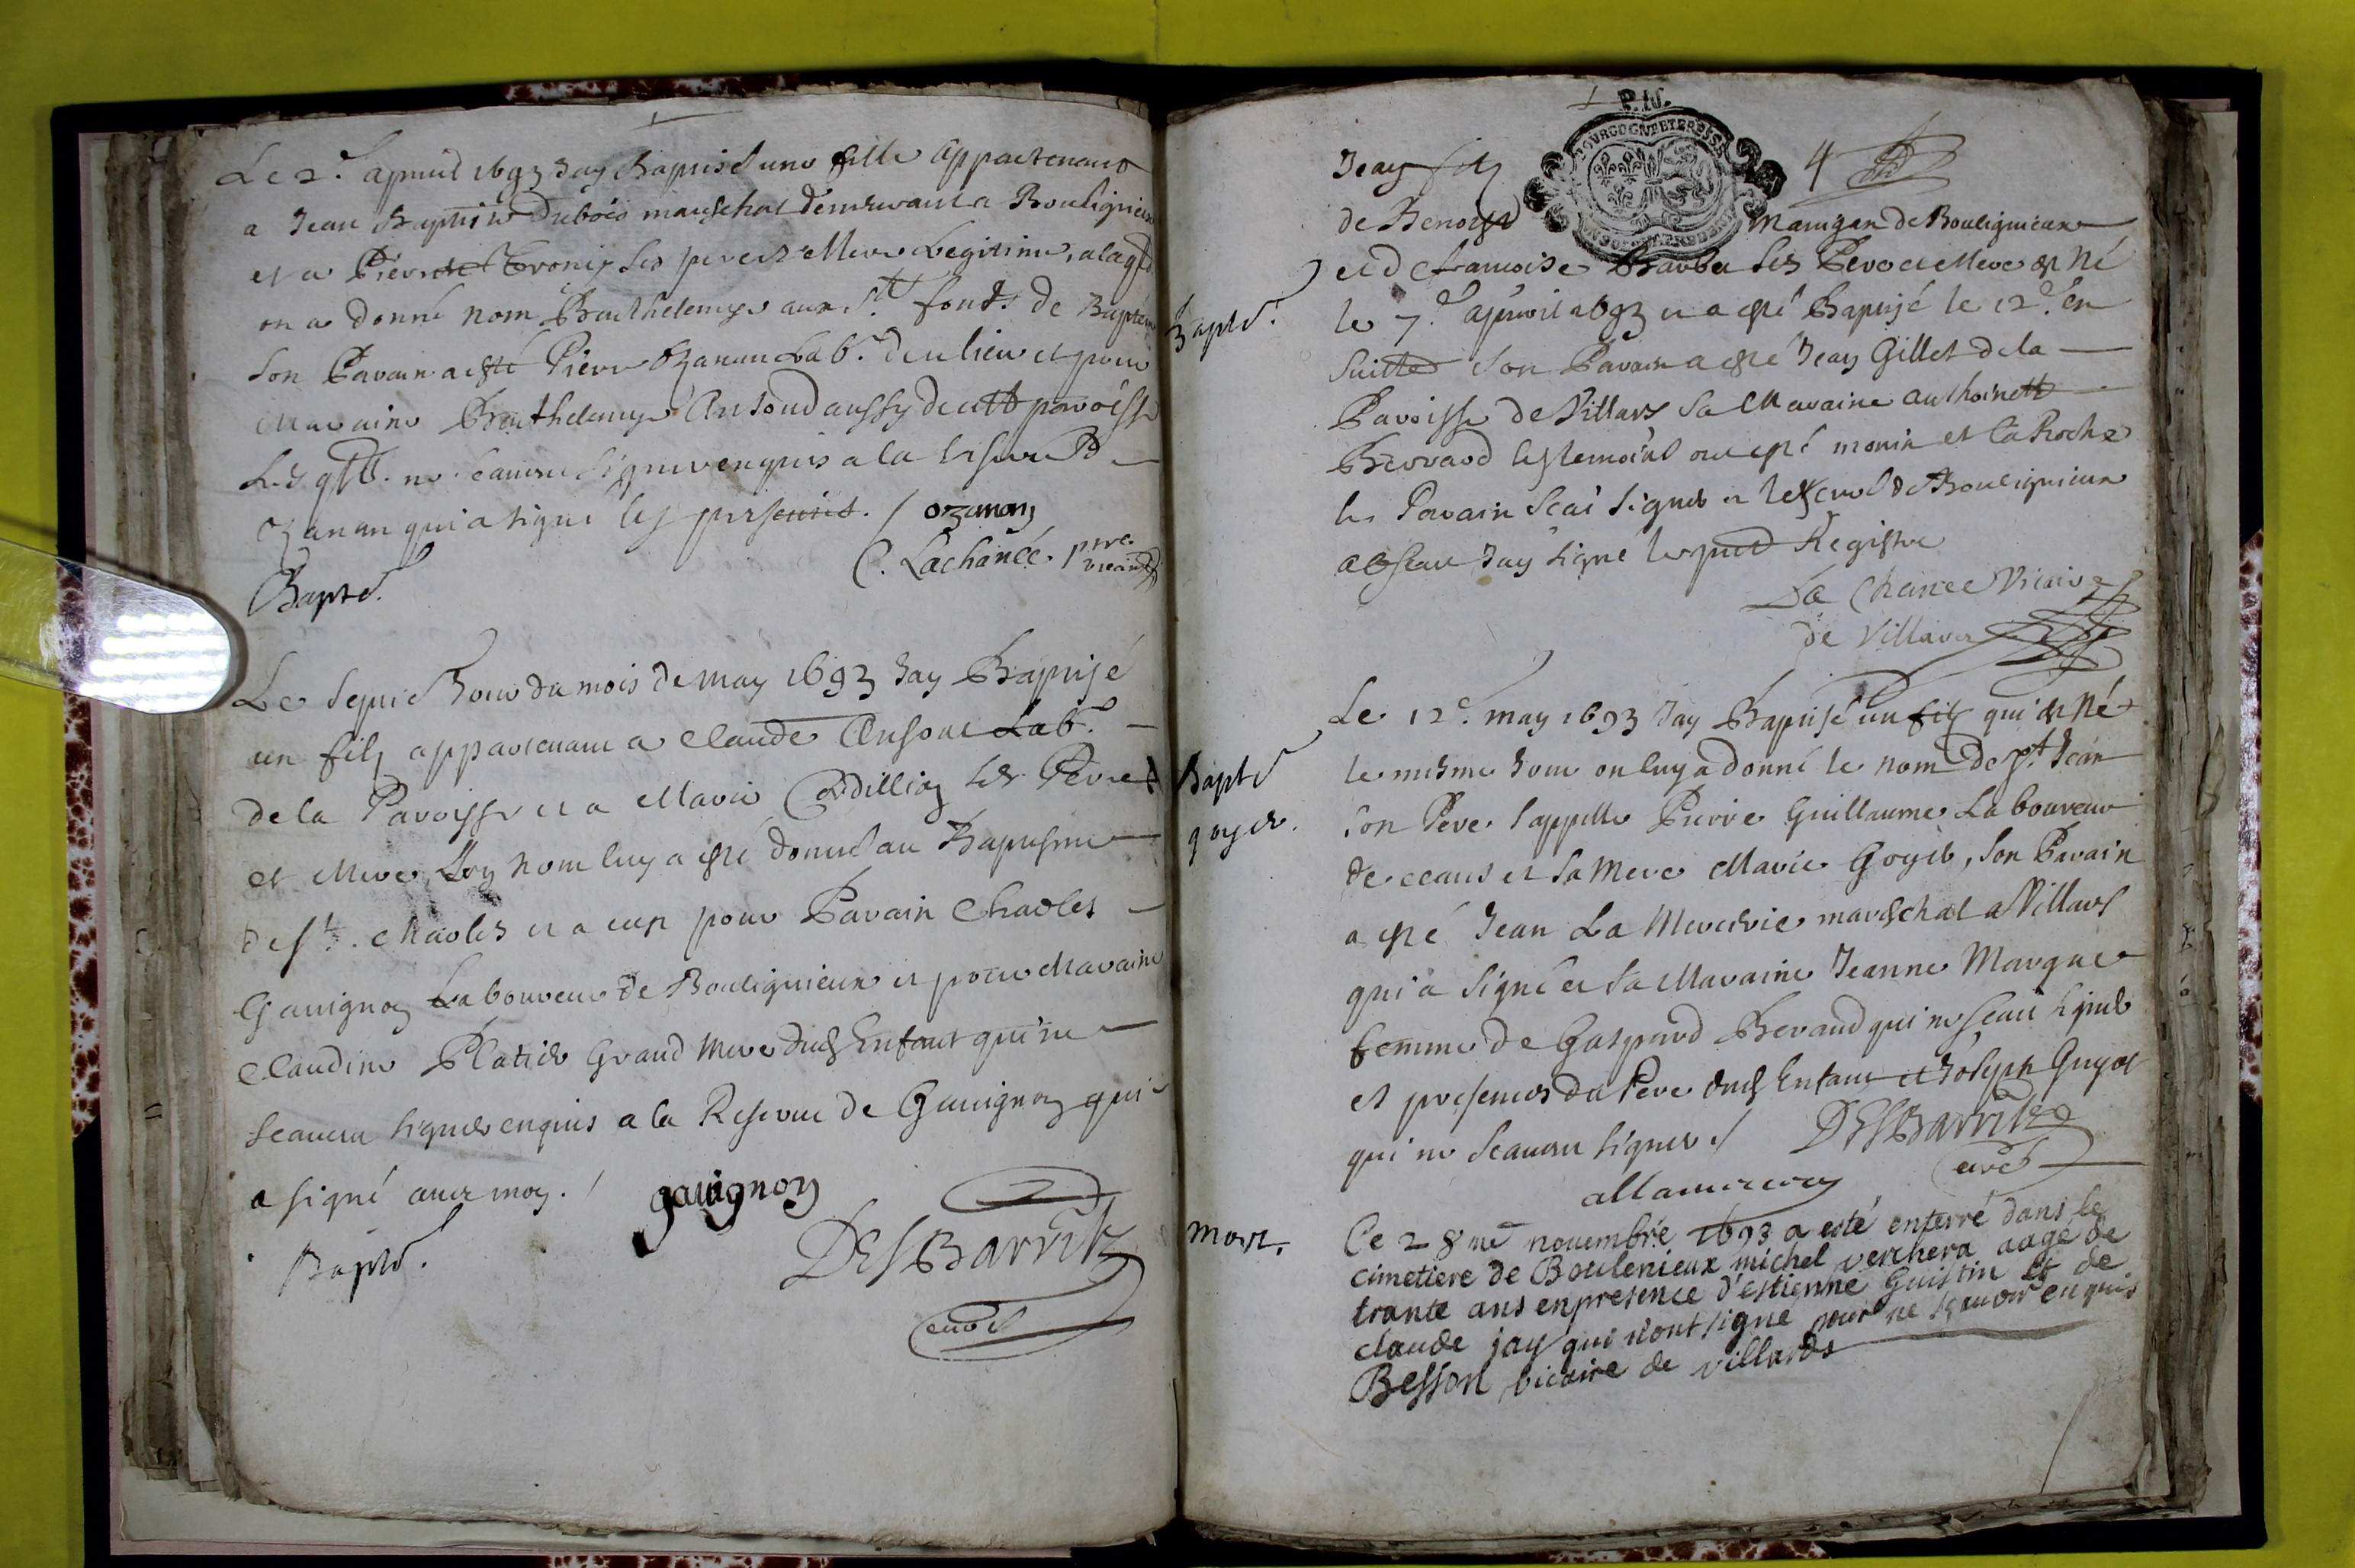 Le 2.e apuril 1693 Jay Baptisé une fille appartenant
a Jean Baptiste Dubois mareschal demeurant a Bouligneux
et a Pierrette ses pere et Mere Legitime, a laquelle
on a donné nom Barthelemye aux Sts fonds de Baptesme
son Parain a esté Pierre Ozanan Lab.r du lieu et pour
Maraine Barthelemye aussy de cette paroisse
Lesq.ls ne scavent signer enquis a la reserve d
Ozanan qui a signé les presentes. / ozanan
C. Lachance. ptre vicaire
Bapte.
Le septie Jour du mois de may 1693 Jay Baptisé
un filz appartenant a Claude Lab.r
de la Paroisse et a Marie ses Pere
et Mere, Son nom luy a esté donné au Baptesme
de St. Charles et a eut pour Parain Charles
Gauignon Laboureur de Bouligneux et pour Maraine
Claudine Platier Grand Mere dud Enfant qui ne
scauent signer enquis a la Reserue de Gauignon qui
a signé auec moy. / gauignon
DESBarrits
curé
Bapte.
P. IV.
BOURGOGNE ET BRESSE
4
Jean filz
de Benoist Manigan de Bouligneux
et de francoise Barbe ses Pere et Mere est Né
Bapte.
le 7.e apuril 1693 et a esté Baptisé le 12.e en
suitte son Parain a esté Jean Gillet de la
Paroisse de Villars sa Maraine anthoinette
Berrard les temoins ont esté monin et la Roche
le Parain scai signer et le Curé de Bouligneux
absent Jay signé le pnt Registre
La Chance Vicaire
de Villars
Le 12e. may 1693 Jay Baptisé un filz qui est Né
Bapte
le mesme Jour on luy a donné le nom de St. Jean
goyet.
son Pere s'appelle Pierre Guillaume Laboureur
de ceans et sa Mere Marie Goyet, son Parain
a esté Jean La Mercerie mareschal a Villars
qui a signé et sa Maraine Jeanne Margue
femme de Gaspard Beraud qui ne scait signer
et presences du Pere dud Enfant et Joseph Guyot
qui ne scauent signer / DESBarrits
curé
mort.
Ce 28me nouembre 1693 a esté enterré dans le
cimetiere de Boulenieux michel verchera aagé de
trante ans en presence d'estienne Guistin et de
claude jay qui n'ont signé pour ne scauoir enquis
Besson vicaire de villards